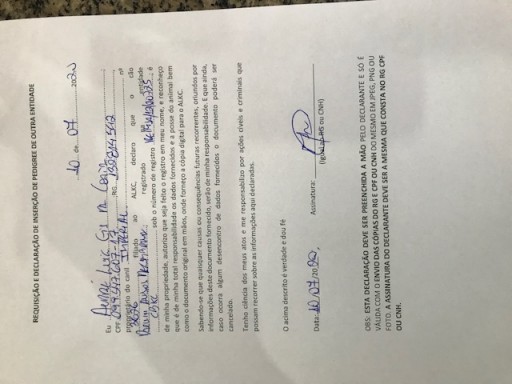 REQUISIÇÃO E DECLARAÇÃO DE INSERÇÃO DE PEDIGREE DE OUTRA ENTIDADE
10 de 07 2020
Eu
CPF RG
proprietário de canil nº
filiado ao ALKC, declaro que o cão
registrado na entidade
sob o número de registro é
de minha propriedade, autorizo que seja feito o registro em meu nome, e reconheço
que é de minha total responsabilidade os dados fornecidos e a posse do animal bem
como o documento original em mãos, onde forneço a cópia digital para o ALKC.
Sabendo-se que quaisquer causas ou consequências futuras recorrentes, oriundos por
informações deste documento fornecido, serão de minha responsabilidade. E que ainda,
caso ocorra algum desencontro de dados fornecidos o documento poderá ser
cancelado.
Tenho ciência dos meus atos e me responsabilizo por ações cíveis e criminais que
possam recorrer sobre as informações aqui declaradas.
O acima descrito é verdade e dou fé
Data: 10/07/2020. Assinatura:
(Igual ao RG ou CNH)
OBS: ESTA DECLARAÇÃO DEVE SER PREENCHIDA A MÃO PELO DECLARANTE E SO É
VÁLIDA COM O ENVIO DAS CÓPIAS DO RG E CPF OU CNH DO MESMO EM JPEG, PNG OU
FOTO. A ASSINATURA DO DECLARANTE DEVE SER A MESMA QUE CONSTA NO RG CPF
OU CNH.